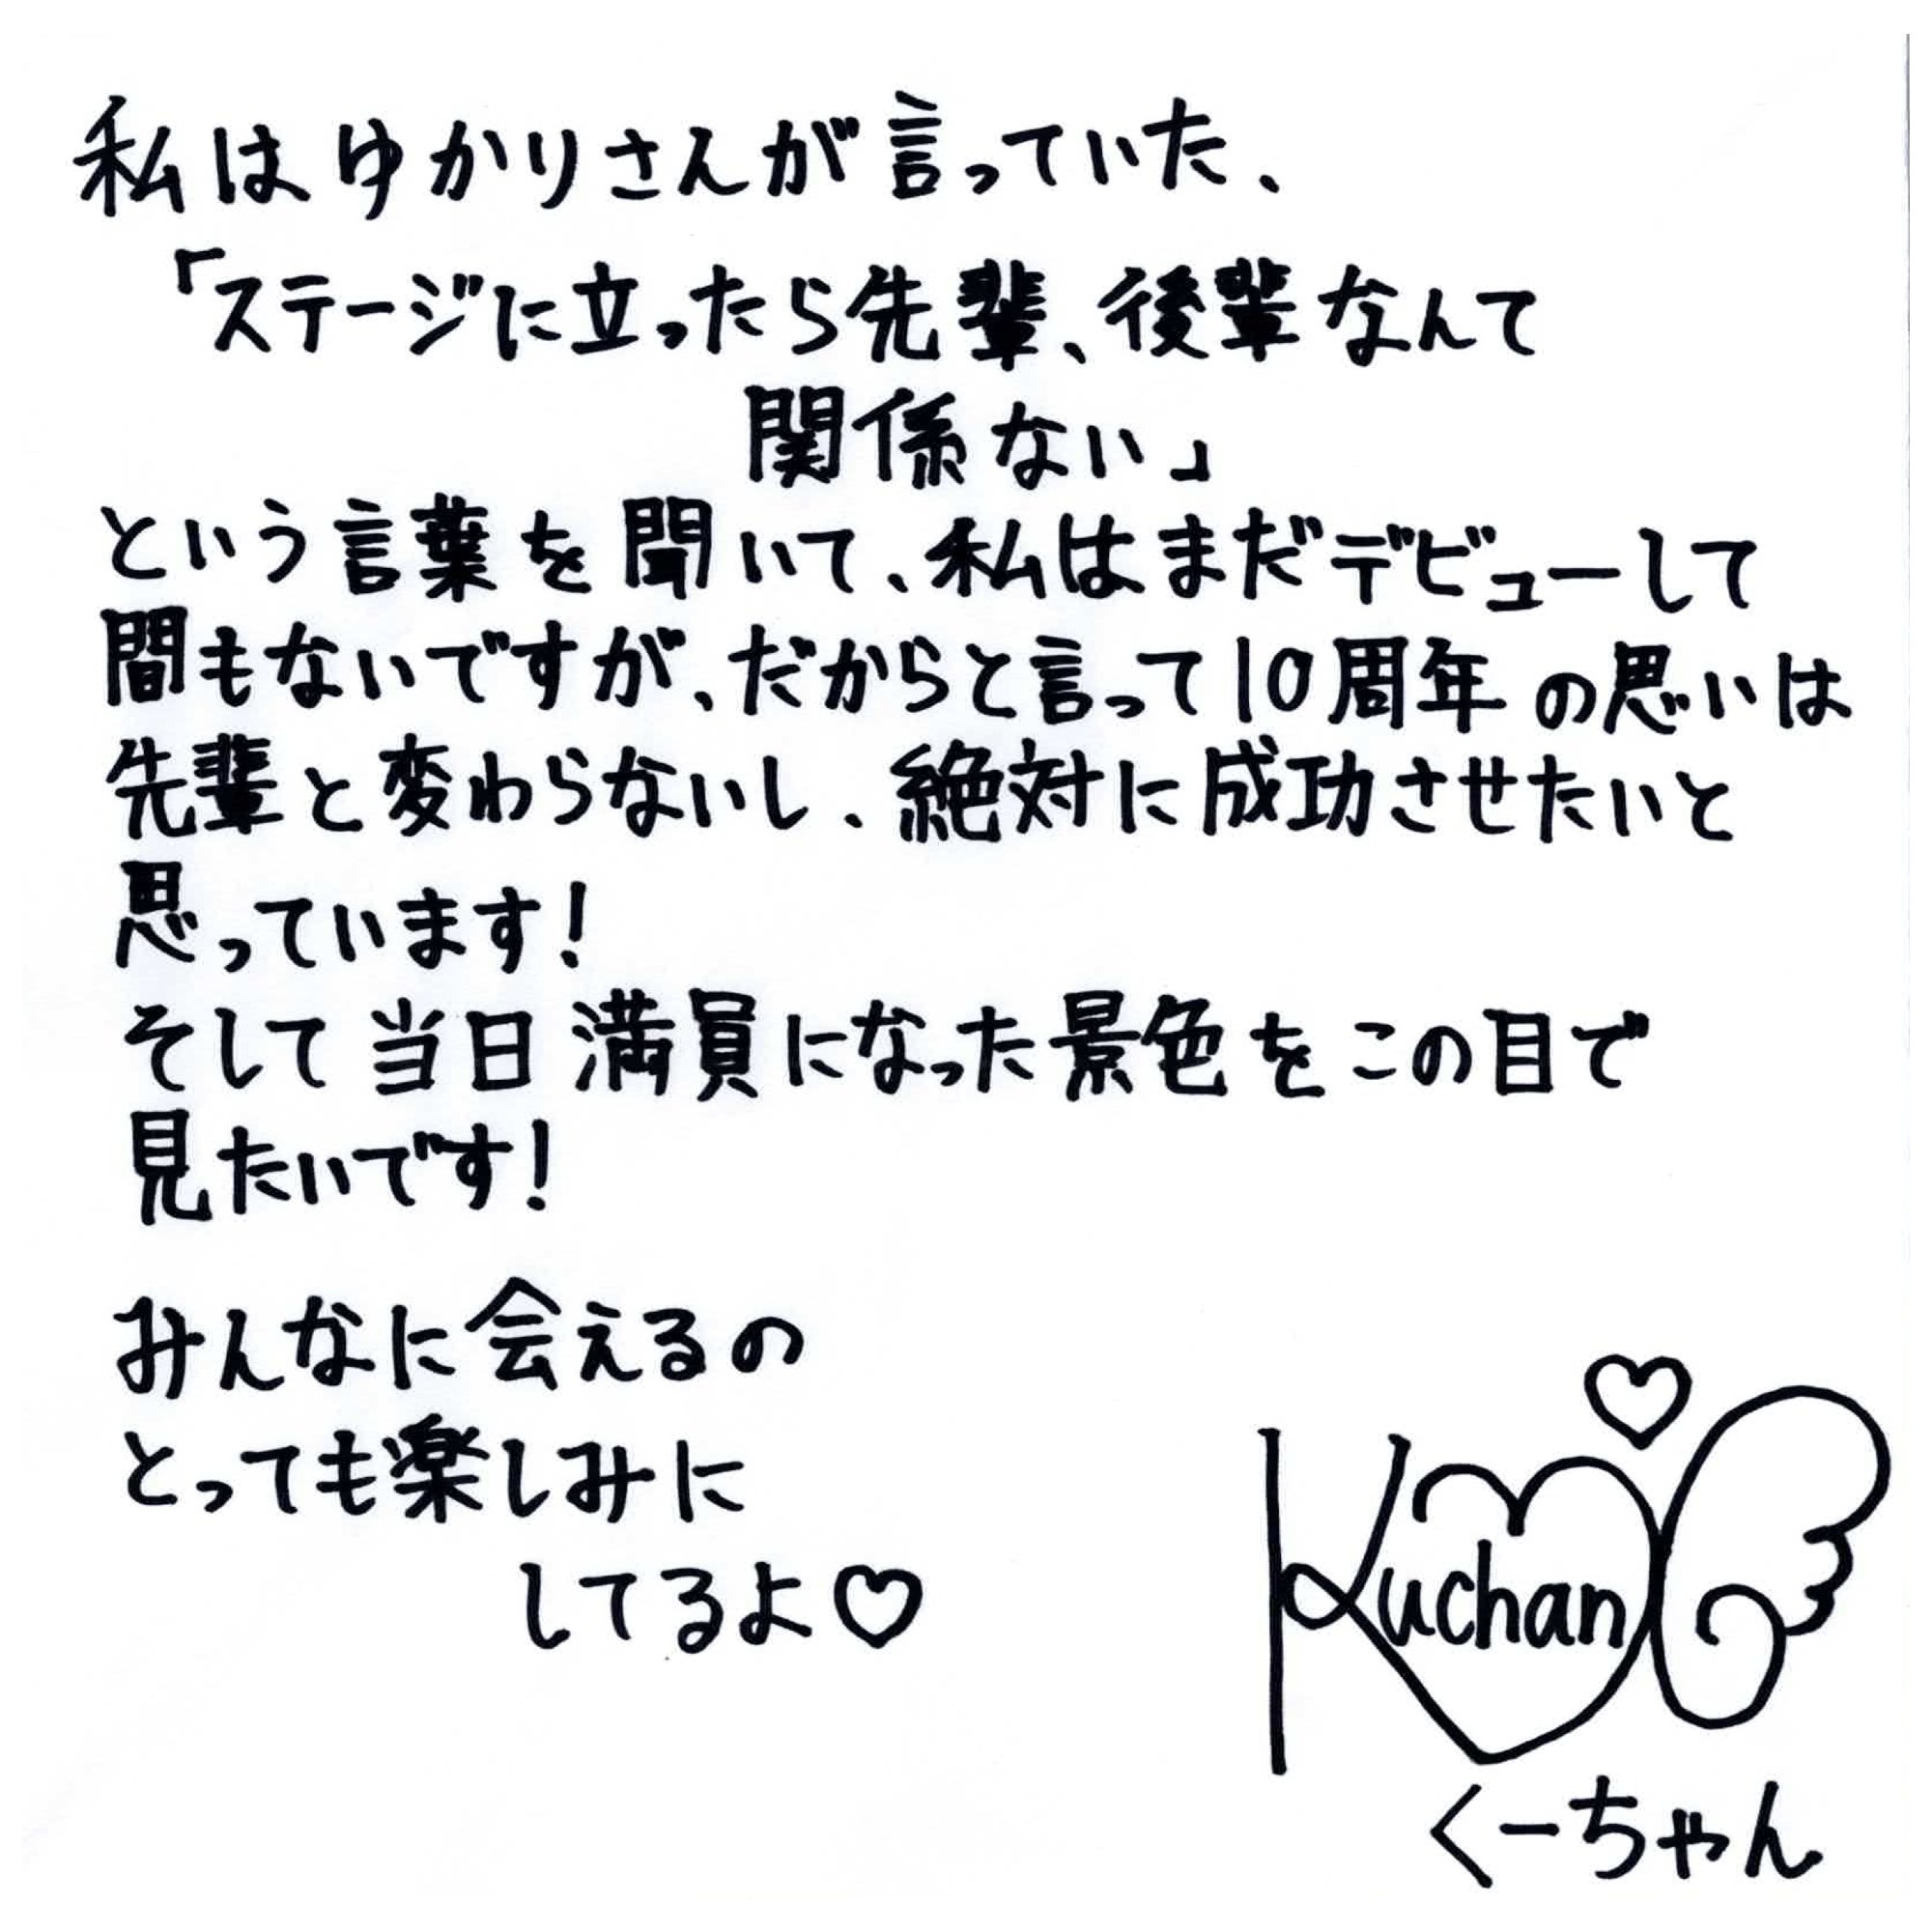 私はゆかりさんが言っていた、
「ステージに立ったら先輩、後輩なんて
関係ない」
という言葉を聞いて、私はまだデビューして
間もないですが、だからと言って10周年の思いは
先輩と変わらないし、絶対に成功させたいと
思っています!
そして当日満員になった景色をこの目で
見たいです!
みんなに会えるの
とっても楽しみに
してるよ♡
Kuchan
くーちゃん